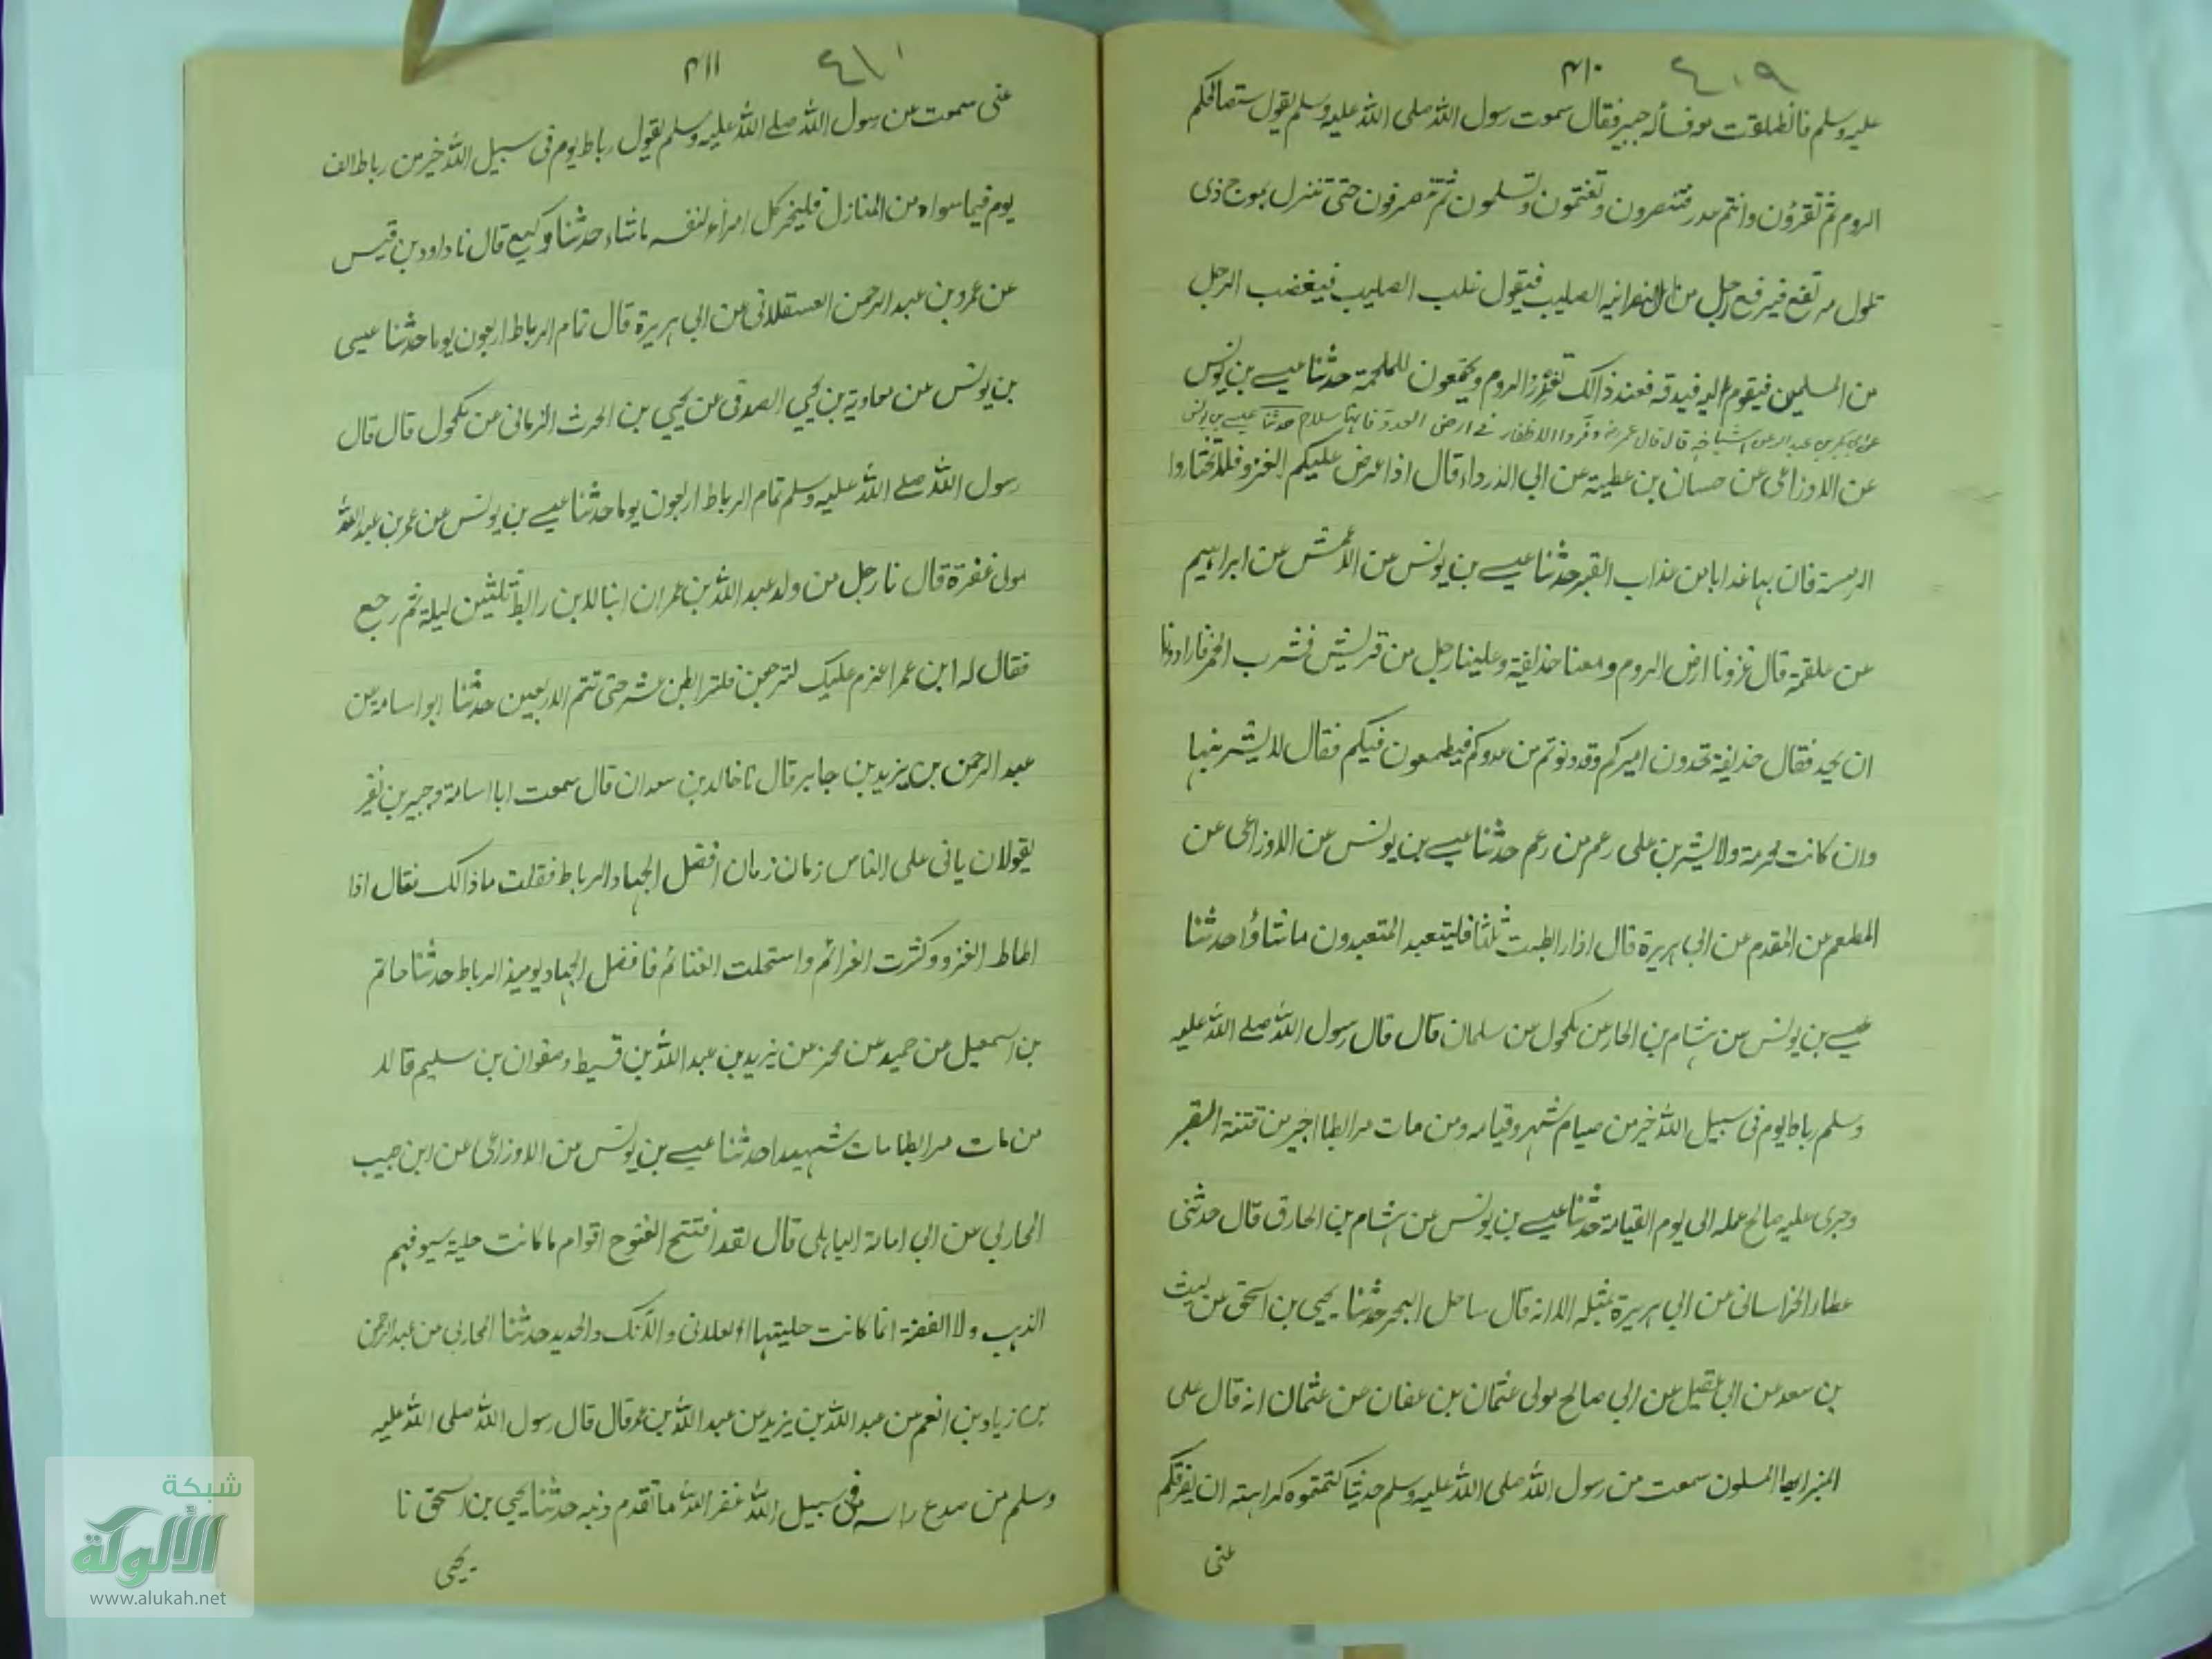 ٤٠٩ ٤١٠
عليه وسلم فانطلقت معه فسأله جبير فقال سمعت رسول الله صلى الله عليه وسلم يقول ستصالحكم
الروم ثم تغزون وانتم عدر فتنصرون وتغنمون وتسلمون ثم تنصرفون حتى تنزل بموج ذى
تلول مرتفع فيرفع رجل من النصرانيه الصليب فيقول غلب الصليب فيغضب الرجل
من المسلمين فيقوم اليه فيدقه فعند ذالك تغدر الروم ويجتمعون للملحمة حدثنا عيسے بن يونس
عن ابى بكر بن عبد الله عن اشياخه قال قال عمر وفروا الاظفار فى ارض العدو فانها سلاح حدثنا عيسے بن يونس
عن الاوزاعى عن حسان بن عطية عن ابى الدرداء قال اذا عرض عليكم الغزو فلا تختاروا
ارمينية فان بها عذابا من عذاب القبر حدثنا عيسے بن يونس عن الاعمش عن ابراهيم
عن علقمة قال غزونا ارض الروم ومعنا حذيفة وعلينا رجل من قريش فشرب الخمر فارادونا
ان نحد فقال حذيفة تحدون اميركم وقد دنوتم من عدوكم فيطمعون فيكم فقال لا يشربنها
وان كانت محرمة ولا يشربن على رغم من رغم حدثنا عيسے بن يونس عن الاوزاعى عن
المطعم عن المقدم عن ابى هريرة قال اذا رابطت ثلثا فليتعبد المتعبدون ما شاؤا حدثنا
عيسے بن يونس عن هشام بن الغاز عن مكحول عن سلمان قال قال رسول الله صلے الله عليه
وسلم رباط يوم فى سبيل الله خير من صيام شهر وقيامه ومن مات مرابطا اجير من فتنة القبر
وجرى عليه صالح عمله الى يوم القيامة حدثنا عيسے بن يونس عن هشام بن الحارق قال حدثنى
عطاء الخراسانى عن ابى هريرة بمثله الا انه قال ساحل البحر حدثنا يحيى بن اسحق عن ليث
بن سعد عن ابى عقيل عن ابى صالح مولى عثمان بن عفان عن عثمان انه قال على
المنبر ايها المسلمون سمعت من رسول الله صلى الله عليه وسلم حديثا كتمتموه كراهته ان يفرقكم
عنى
٤١٠ ٤١١
عنى سمعت من رسول الله صلے الله عليه وسلم يقول رباط يوم فى سبيل الله خير من رباط الف
يوم فيما سواه من المنازل فليختر كل امرء لنفسه ما شاء حدثنا وكيع قال نا داود بن قيس
عن عمرو بن عبد الرحمن العسقلانى عن ابى هريرة قال تمام الرباط اربعون يوما حدثنا عيسى
بن يونس عن معاوية بن يحيى الصدفى عن يحيى بن الحرث الزمانى عن مكحول قال قال
رسول الله صلے الله عليه وسلم تمام الرباط اربعون يوما حدثنا عيسے بن يونس عن عمر بن عبد الله
مولى غفرة قال نا رجل من ولد عبد الله بن عمر ان ابنا لابن رابط ثلثين ليلة ثم رجع
فقال له ابن عمر اعزم عليك لترجعن فلترابطن عشر حتى تتم الاربعين حدثنا ابو اسامة عن
عبد الرحمن بن يزيد بن جابر قال نا خالد بن معدان قال سمعت ابا اسامة وجبير بن نفير
يقولان ياتى على الناس زمان زمان افضل الجهاد الرباط فقلت ماذالك فقال اذا
اطاط الغزو وكثرت الغرائم واستحلت الغنائم فافضل الجهاد يومئذ الرباط حدثنا حاتم
بن اسمعيل عن حميد عن محرز عن يزيد بن عبد الله بن قسيط وصفوان بن سليم قالا
من مات مرابطا مات شهيدا حدثنا عيسے بن يونس عن الاوزاعى عن ابن حبيب
المحاربى عن ابى امامة الباهلى قال لقد افتتح الفتوح اقوام ما كانت حلية سيوفهم
الذهب ولا الفضة انما كانت حليتها العلابى والانك والحديد حدثنا المحاربى عن عبد الرحمن
بن زياد بن انعم عن عبد الله بن يزيد عن عبد الله بن عمر قال قال رسول الله صلى الله عليه
وسلم من صدع راسه فى سبيل الله غفر الله ما تقدم ذنبه حدثنا يحيى بن اسحق نا
يحيى
شبكة
الألوكة
www.alukah.net